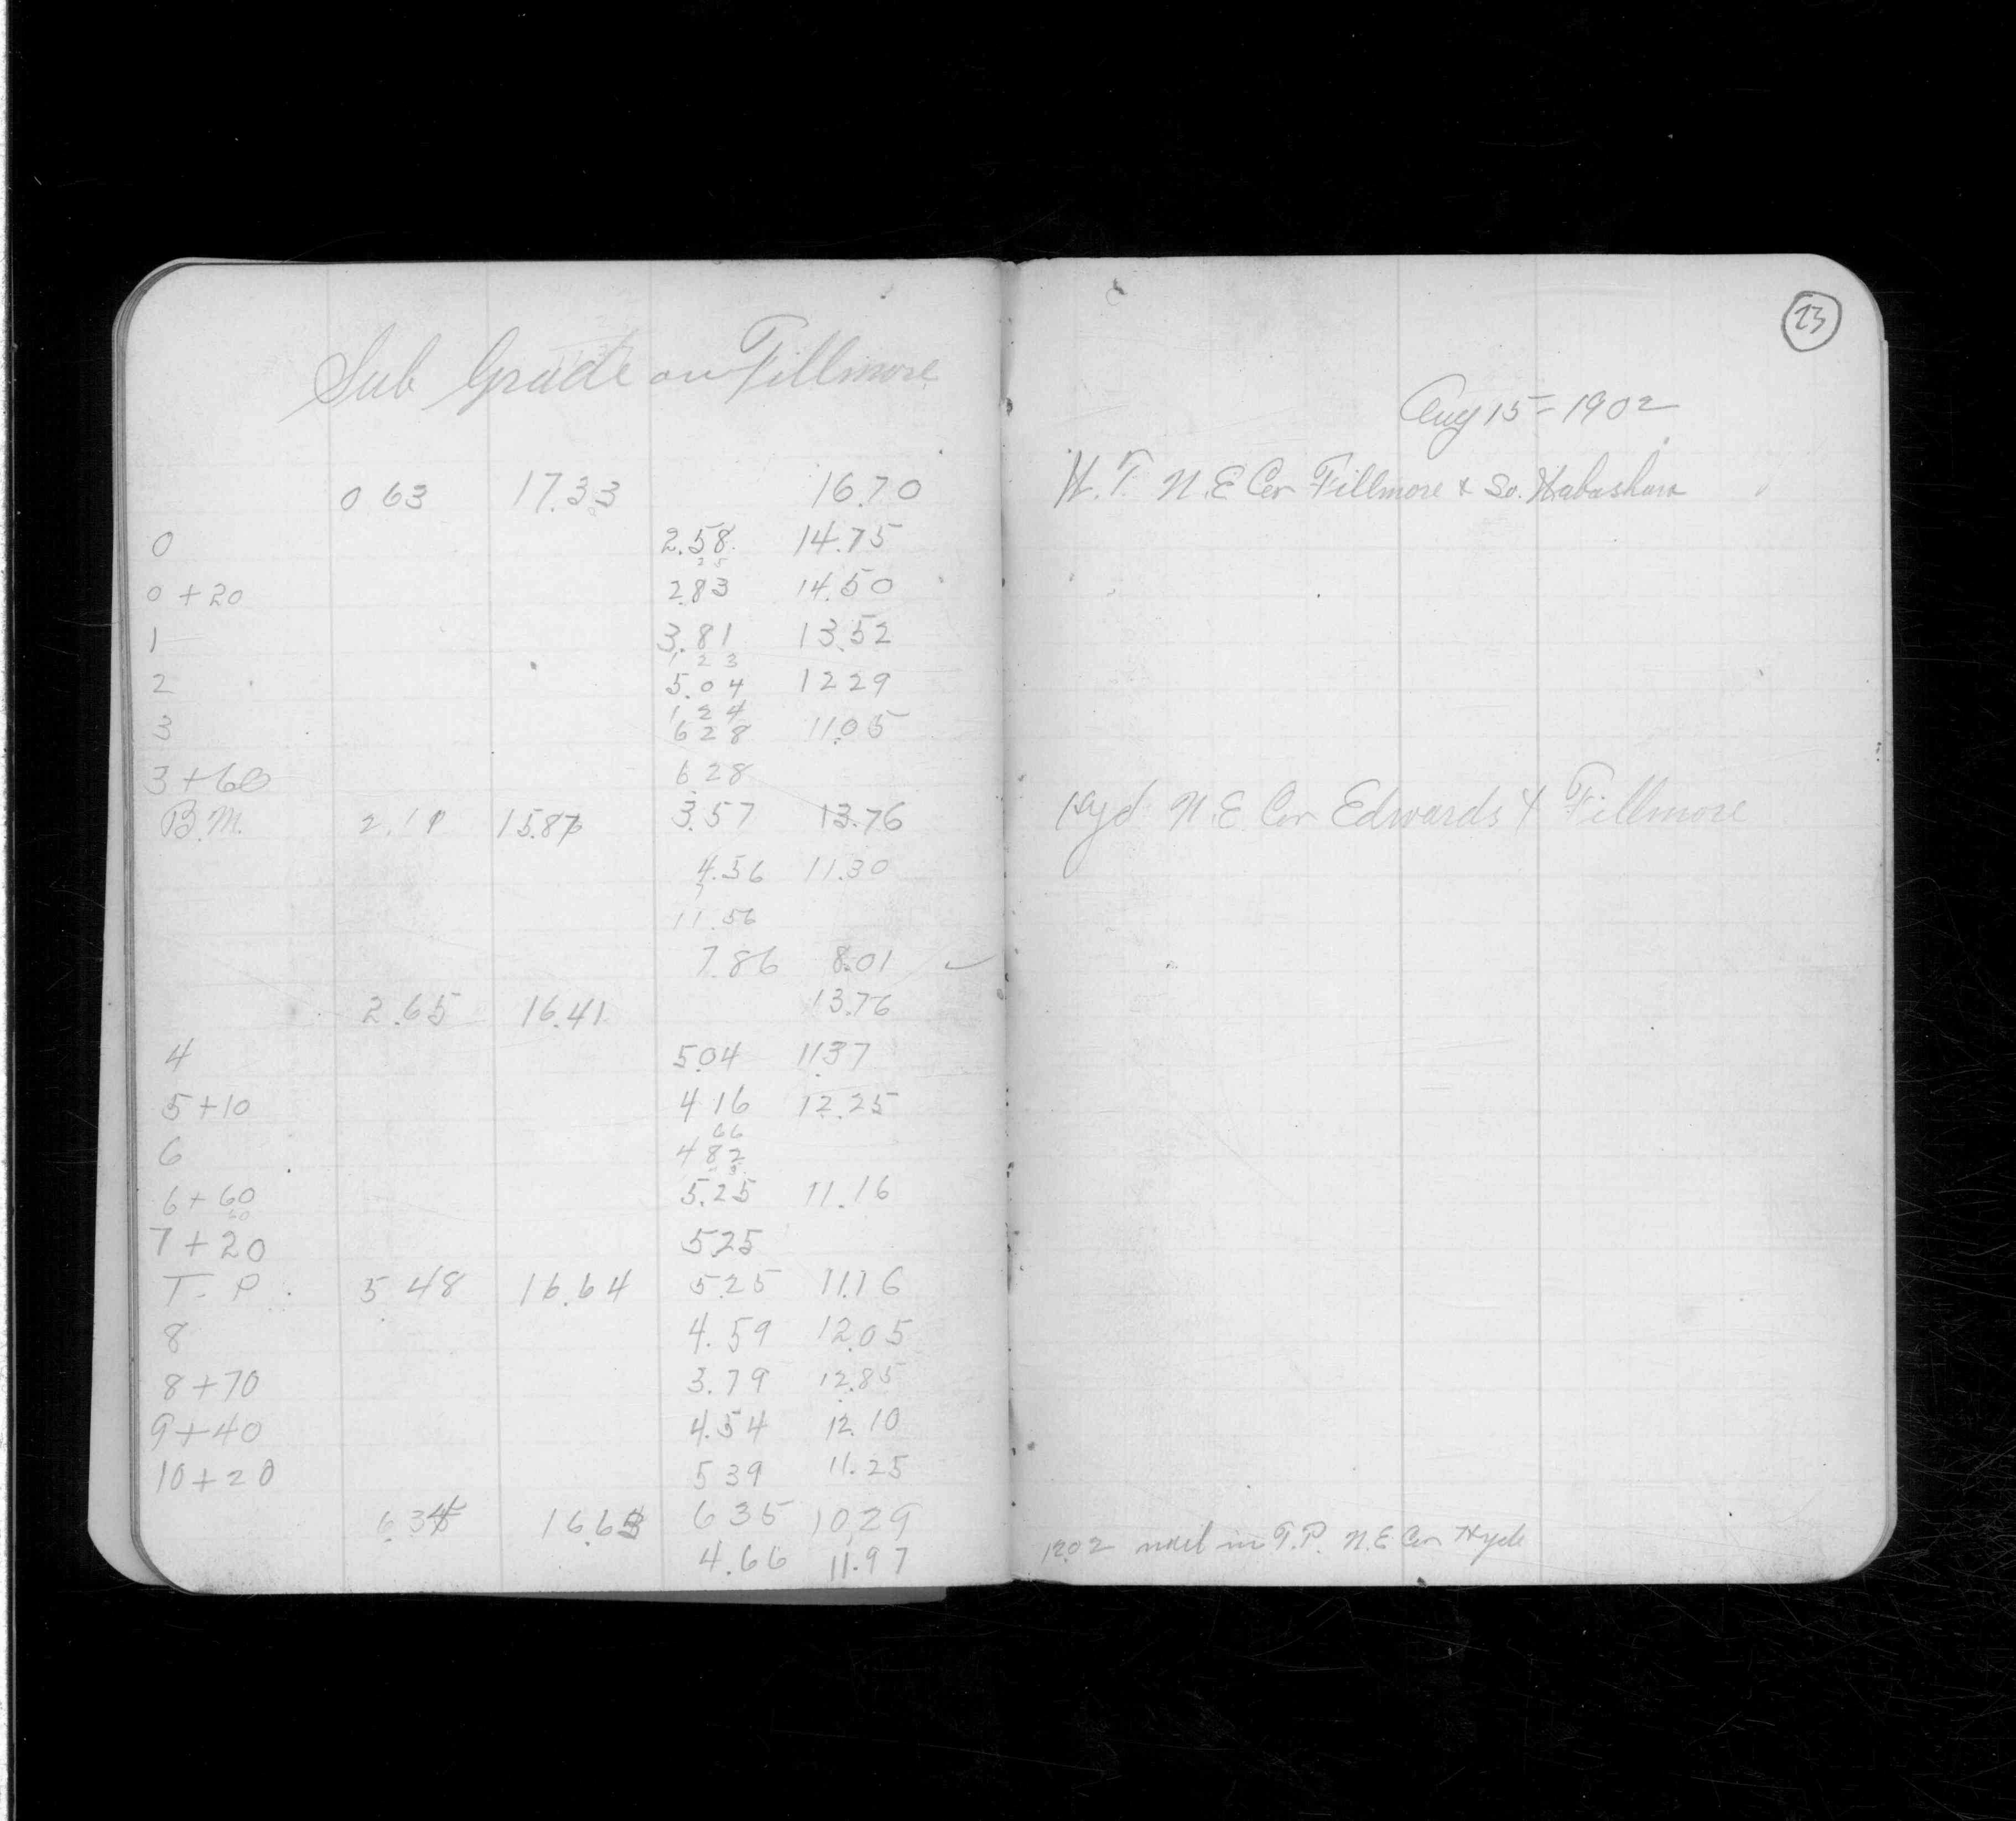 Sub Grade on Fillmore
0 63 17.33 16.70
0 2.58 14.75
25
0 + 20 2.83 14.50
1 3.81 13.52
1 2 3
2 5.04 12 29
1 2 4
3 6 28 11.05
3 + 60 6 28
B.M. 2.11 15.87 3.57 13.76
4.56 11.30
7
11.56
7.86 8.01
2.65 16.41 13.76
4 5.04 11.37
5 + 10 4 16 12.25
66
6 4 82
6 + 60 5.25 11.16
60
7 + 20 5.25
T. P. 5 48 16.64 5.25 11.16
8 4.59 12.05
8 + 70 3.79 12.85
9 + 40 4.54 12.10
10 + 20 5 39 11.25
6.34 16.63 6 35 10.29
4.66 11.97
23
Aug 15 = 1902
N. E Cor Fillmore & So. Wabashaw
Hyd N. E. Cor Edwards & Fillmore
1202 nail in T.P. N.E. Cor Hyde